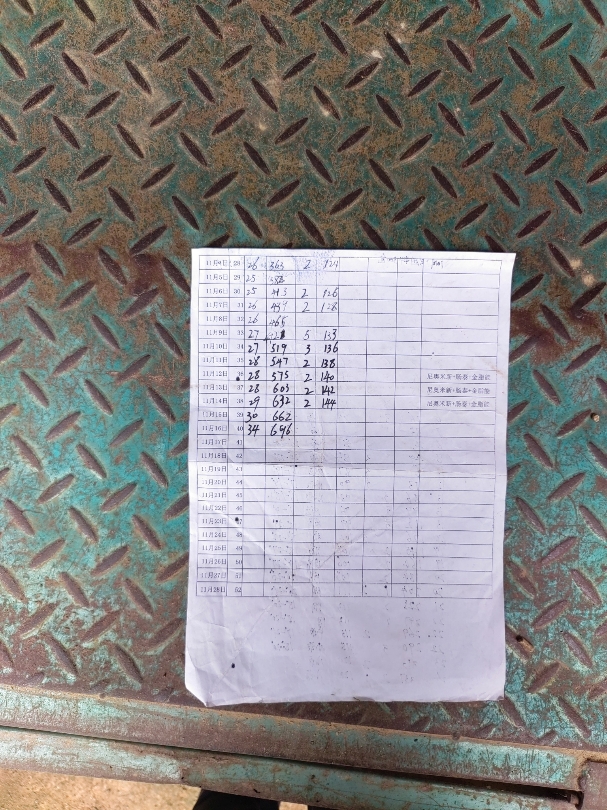 28 26 363 2 124
11月5日 29 25 388
11月6日 30 25 413 2 126
11月7日 31 26 439 2 128
11月8日 32 26 465
11月9日 33 27 5 133
11月10日 34 27 519 3 136
11月11日 35 28 547 2 138
11月12日 36 28 575 2 140 尼奥米新+肠泰+金脂能
11月13日 37 28 603 2 142 尼奥米新+肠泰+金脂能
11月14日 38 29 632 2 144 尼奥米新+肠泰+金脂能
11月15日 39 30 662
11月16日 40 34 696
11月17日 41
11月18日 42
11月19日 43
11月20日 44
11月21日 45
11月22日 46
11月23日 47
11月24日 48
11月25日 49
11月26日 50
11月27日 51
11月28日 52